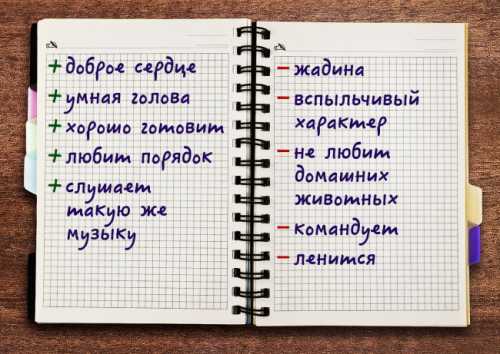 + доброе сердце
+ умная голова
+ хорошо готовит
+ любит порядок
+ слушает
такую же
музыку
– жадина
– вспыльчивый
характер
– не любит
домашних
животных
– командует
– ленится